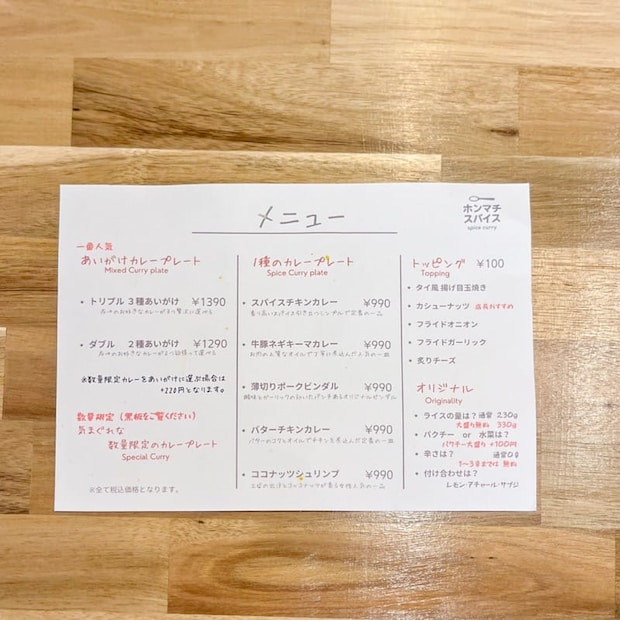 メニュー
ホンマチ
スパイス
spice curry
一番人気
あいがけカレープレート
Mixed Curry plate
・トリプル 3種あいがけ ¥1390
・ダブル 2種あいがけ ¥1290
※数量限定カレーをあいがけに選ぶ場合は
+220円となります。
数量限定(黒板をご覧ください)
気まぐれな
数量限定のカレープレート
Special Curry
※全て税込価格となります。
1種のカレープレート
Spice Curry plate
・スパイスチキンカレー ¥990
・牛豚ネギキーマカレー ¥990
・薄切りポークビンダル ¥990
・バターチキンカレー ¥990
・ココナッツシュリンプ ¥990
トッピング ¥100
Topping
・タイ風 揚げ目玉焼き
・カシューナッツ 店長おすすめ
・フライドオニオン
・フライドガーリック
・炙りチーズ
オリジナル
Originality
・ライスの量は? 通常 230g
大盛り無料 330g
・パクチー or 水菜は?
パクチー大盛り +100円
・辛さは? 通常0辛
1〜3辛までは 無料
・付け合わせは?
レモン・アチャール・サブジ